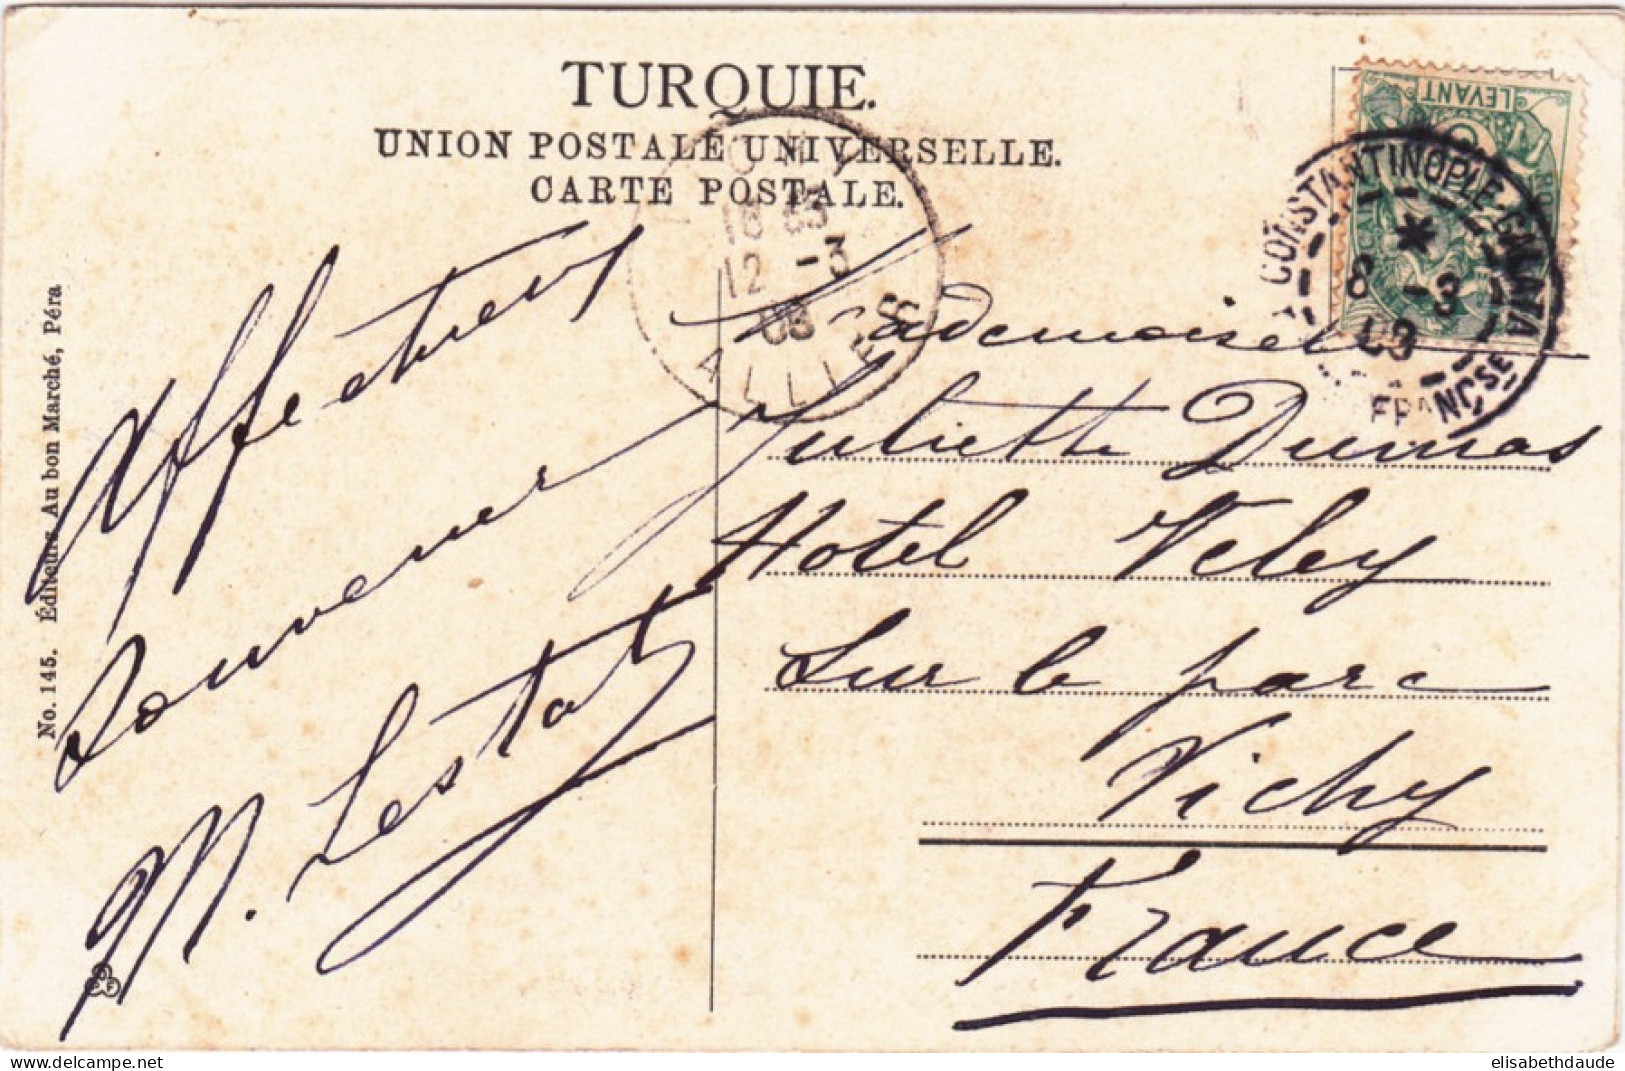 TURQUIE.
UNION POSTALE UNIVERSELLE.
CARTE POSTALE.
LEVANT
CONSTANTINOPLE-GALATA
8 -3
FRANÇSE
12 -3
08
ALLIER
Affectueux
Souvenir
M. Lestat
Mademoiselle
Juliette Dumas
Hotel Veley
Sur le parc
Vichy
France
No. 145. Éditeurs Au bon Marché, Péra
delcampe.net
elisabethdaude